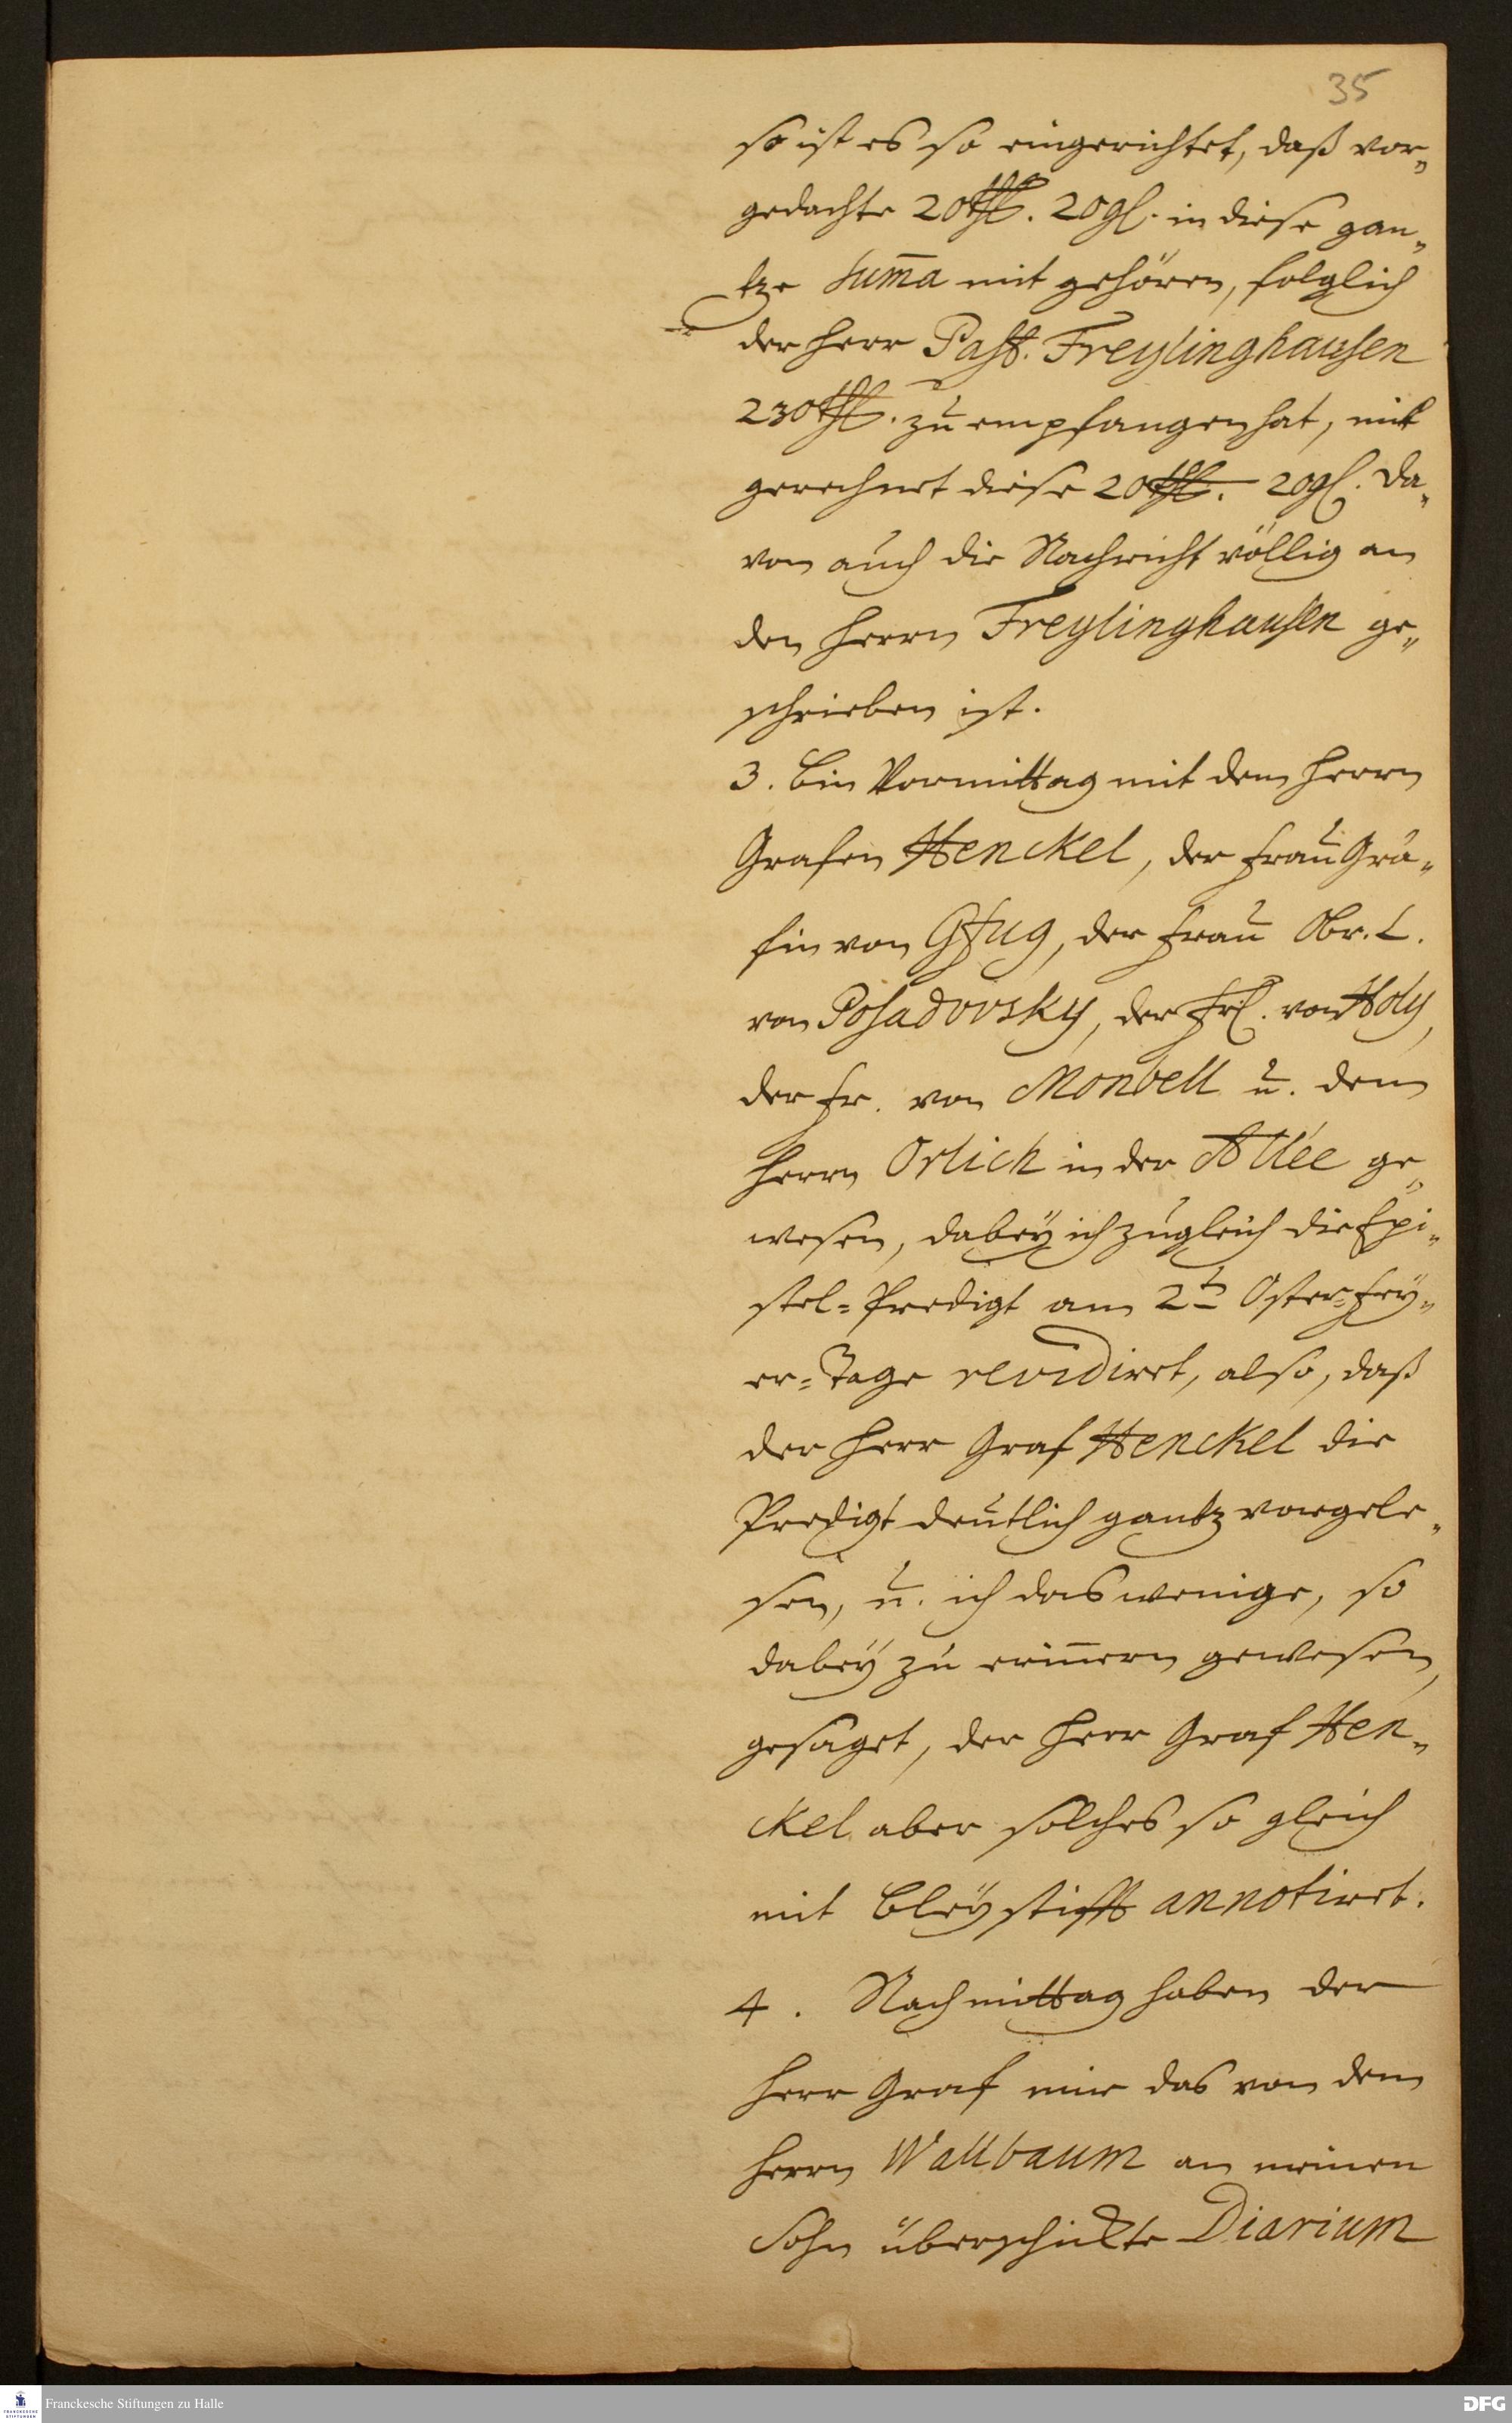 35
so ist es so eingerichtet, daß vor„
gedachte 20 thl. 20 gl. in diese gan„
tze Sum̄a mit gehören, folglich
der Herr Past. Freylinghausen
230 thl. zu empfangen hat, mit
gerechnet diese 20 thl. 20 gl. da„
von auch die Nachricht völlig an
den Herrn Freylinghausen ge„
schrieben ist.
3. Bin Vormittag mit dem Herrn
Grafen Henckel, der Frau Grä„
fin von Gfug, der Frau Obr. L.
von Posadovsky, der Frl. von Holy,
der Fr. von Monbell u. dem
Herrn Orlich in der Allée ge„
wesen, dabey ich zugleich die Epi„
stel-Predigt am 2t Oster-Fey„
er-Tage revidiret, also, daß
der Herr Graf Henckel die
Predigt deutlich gantz vorgele„
sen, u. ich das wenige, so
dabey zu erin̄ern gewesen,
gesaget, der Herr Graf Hen„
ckel aber solches so gleich
mit Bleystifft annotiret.
4. Nachmittag haben der
Herr Graf mir das von dem
Herrn Wallbaum an meinen
Sohn überschickte Diarium
Franckesche Stiftungen zu Halle
DFG